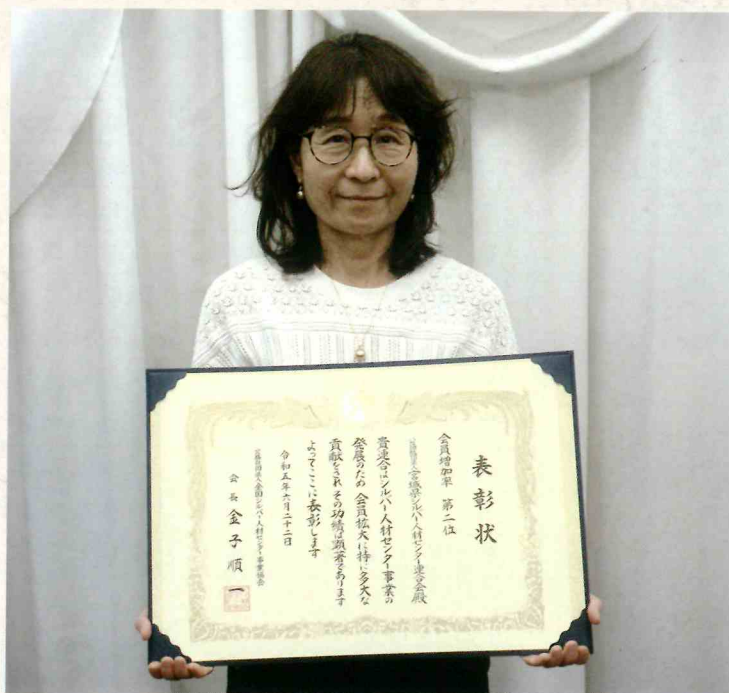 表彰状
会員増加率 第二位
公益社団法人宮城県シルバー人材センター連合会殿
貴連合はシルバー人材センター事業の
発展のため 会員拡大に特に多大な
貢献をされ その功績は顕著であります
よってここに表彰します
令和五年六月二十二日
公益社団法人全国シルバー人材センター事業協会
会長 金子順一